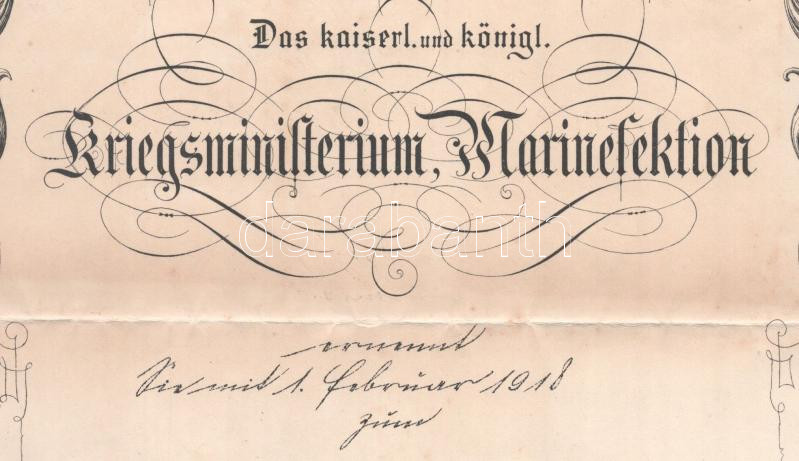 Das kaiserl. und königl.
Kriegsministerium, Marinesektion
darabanth
ernennt
Sie mit 1. Februar 1918
zum